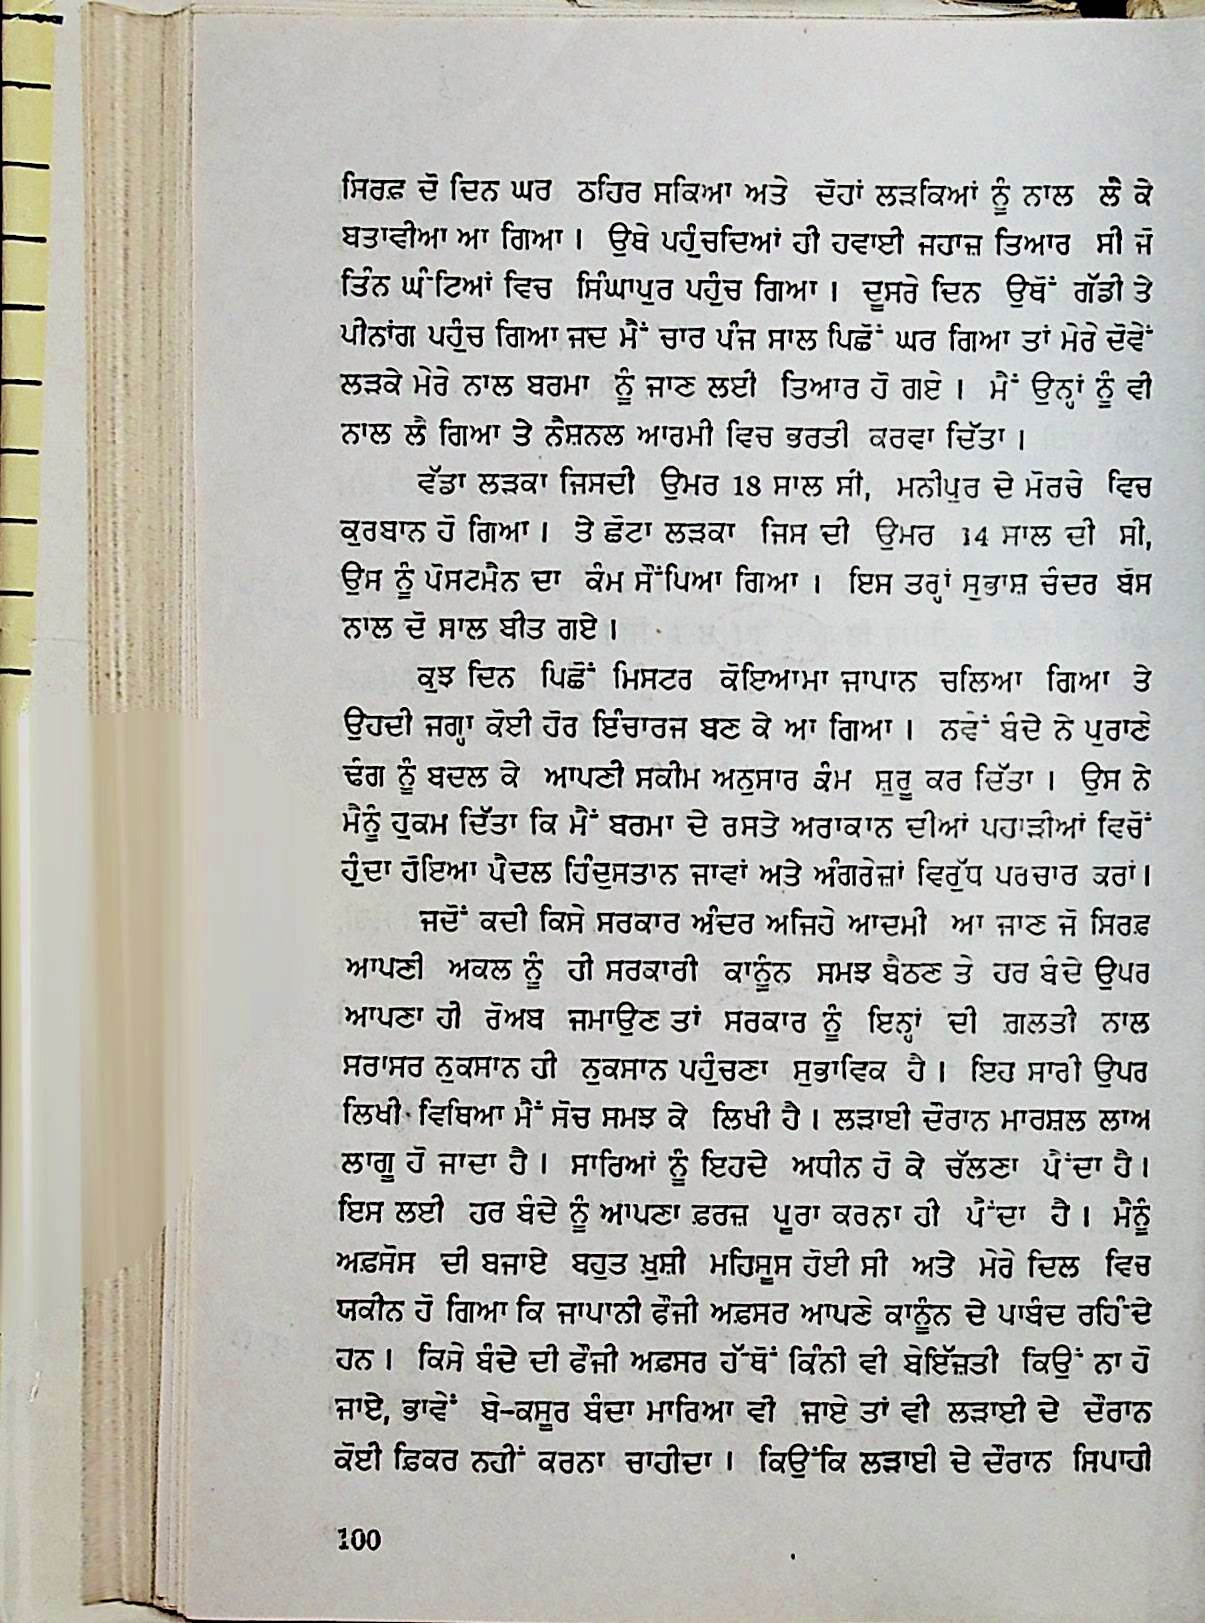 ਸਿਰਫ਼ ਦੋ ਦਿਨ ਘਰ ਠਹਿਰ ਸਕਿਆ ਅਤੇ ਦੋਹਾਂ ਲੜਕਿਆਂ ਨੂੰ ਨਾਲ ਲੈ ਕੇ
ਬਤਾਵੀਆ ਆ ਗਿਆ। ਉਥੇ ਪਹੁੰਚਦਿਆਂ ਹੀ ਹਵਾਈ ਜਹਾਜ਼ ਤਿਆਰ ਸੀ ਜੋ
ਤਿੰਨ ਘੰਟਿਆਂ ਵਿਚ ਸਿੰਘਾਪੁਰ ਪਹੁੰਚ ਗਿਆ। ਦੂਸਰੇ ਦਿਨ ਉਥੋਂ ਗੱਡੀ ਤੇ
ਪੀਨਾਂਗ ਪਹੁੰਚ ਗਿਆ ਜਦ ਮੈਂ ਚਾਰ ਪੰਜ ਸਾਲ ਪਿਛੋਂ ਘਰ ਗਿਆ ਤਾਂ ਮੇਰੇ ਦੋਵੇਂ
ਲੜਕੇ ਮੇਰੇ ਨਾਲ ਬਰਮਾ ਨੂੰ ਜਾਣ ਲਈ ਤਿਆਰ ਹੋ ਗਏ। ਮੈਂ ਉਨ੍ਹਾਂ ਨੂੰ ਵੀ
ਨਾਲ ਲੈ ਗਿਆ ਤੇ ਨੈਸ਼ਨਲ ਆਰਮੀ ਵਿਚ ਭਰਤੀ ਕਰਵਾ ਦਿੱਤਾ।
ਵੱਡਾ ਲੜਕਾ ਜਿਸਦੀ ਉਮਰ 18 ਸਾਲ ਸੀ, ਮਨੀਪੁਰ ਦੇ ਮੋਰਚੇ ਵਿਚ
ਕੁਰਬਾਨ ਹੋ ਗਿਆ। ਤੇ ਛੋਟਾ ਲੜਕਾ ਜਿਸ ਦੀ ਉਮਰ 14 ਸਾਲ ਦੀ ਸੀ,
ਉਸ ਨੂੰ ਪੋਸਟਮੈਨ ਦਾ ਕੰਮ ਸੌਂਪਿਆ ਗਿਆ। ਇਸ ਤਰ੍ਹਾਂ ਸੁਭਾਸ਼ ਚੰਦਰ ਬੋਸ
ਨਾਲ ਦੋ ਸਾਲ ਬੀਤ ਗਏ।
ਕੁਝ ਦਿਨ ਪਿਛੋਂ ਮਿਸਟਰ ਕੋਇਆਮਾ ਜਾਪਾਨ ਚਲਿਆ ਗਿਆ ਤੇ
ਉਹਦੀ ਜਗ੍ਹਾ ਕੋਈ ਹੋਰ ਇੰਚਾਰਜ ਬਣ ਕੇ ਆ ਗਿਆ। ਨਵੇਂ ਬੰਦੇ ਨੇ ਪੁਰਾਣੇ
ਢੰਗ ਨੂੰ ਬਦਲ ਕੇ ਆਪਣੀ ਸਕੀਮ ਅਨੁਸਾਰ ਕੰਮ ਸ਼ੁਰੂ ਕਰ ਦਿੱਤਾ। ਉਸ ਨੇ
ਮੈਨੂੰ ਹੁਕਮ ਦਿੱਤਾ ਕਿ ਮੈਂ ਬਰਮਾ ਦੇ ਰਸਤੇ ਅਰਾਕਾਨ ਦੀਆਂ ਪਹਾੜੀਆਂ ਵਿਚੋਂ
ਹੁੰਦਾ ਹੋਇਆ ਪੈਦਲ ਹਿੰਦੁਸਤਾਨ ਜਾਵਾਂ ਅਤੇ ਅੰਗਰੇਜ਼ਾਂ ਵਿਰੁੱਧ ਪਰਚਾਰ ਕਰਾਂ।
ਜਦੋਂ ਕਦੀ ਕਿਸੇ ਸਰਕਾਰ ਅੰਦਰ ਅਜਿਹੇ ਆਦਮੀ ਆ ਜਾਣ ਜੋ ਸਿਰਫ਼
ਆਪਣੀ ਅਕਲ ਨੂੰ ਹੀ ਸਰਕਾਰੀ ਕਾਨੂੰਨ ਸਮਝ ਬੈਠਣ ਤੇ ਹਰ ਬੰਦੇ ਉਪਰ
ਆਪਣਾ ਹੀ ਰੋਅਬ ਜਮਾਉਣ ਤਾਂ ਸਰਕਾਰ ਨੂੰ ਇਨ੍ਹਾਂ ਦੀ ਗ਼ਲਤੀ ਨਾਲ
ਸਰਾਸਰ ਨੁਕਸਾਨ ਹੀ ਨੁਕਸਾਨ ਪਹੁੰਚਣਾ ਸੁਭਾਵਿਕ ਹੈ। ਇਹ ਸਾਰੀ ਉਪਰ
ਲਿਖੀ ਵਿਥਿਆ ਮੈਂ ਸੋਚ ਸਮਝ ਕੇ ਲਿਖੀ ਹੈ। ਲੜਾਈ ਦੌਰਾਨ ਮਾਰਸ਼ਲ ਲਾਅ
ਲਾਗੂ ਹੋ ਜਾਦਾ ਹੈ। ਸਾਰਿਆਂ ਨੂੰ ਇਹਦੇ ਅਧੀਨ ਹੋ ਕੇ ਚੱਲਣਾ ਪੈਂਦਾ ਹੈ।
ਇਸ ਲਈ ਹਰ ਬੰਦੇ ਨੂੰ ਆਪਣਾ ਫ਼ਰਜ਼ ਪੂਰਾ ਕਰਨਾ ਹੀ ਪੈਂਦਾ ਹੈ। ਮੈਨੂੰ
ਅਫ਼ਸੋਸ ਦੀ ਬਜਾਏ ਬਹੁਤ ਖ਼ੁਸ਼ੀ ਮਹਿਸੂਸ ਹੋਈ ਸੀ ਅਤੇ ਮੇਰੇ ਦਿਲ ਵਿਚ
ਯਕੀਨ ਹੋ ਗਿਆ ਕਿ ਜਾਪਾਨੀ ਫੌਜੀ ਅਫ਼ਸਰ ਆਪਣੇ ਕਾਨੂੰਨ ਦੇ ਪਾਬੰਦ ਰਹਿੰਦੇ
ਹਨ। ਕਿਸੇ ਬੰਦੇ ਦੀ ਫੌਜੀ ਅਫ਼ਸਰ ਹੱਥੋਂ ਕਿੰਨੀ ਵੀ ਬੇਇੱਜ਼ਤੀ ਕਿਉਂ ਨਾ ਹੋ
ਜਾਏ, ਭਾਵੇਂ ਬੇ-ਕਸੂਰ ਬੰਦਾ ਮਾਰਿਆ ਵੀ ਜਾਏ ਤਾਂ ਵੀ ਲੜਾਈ ਦੇ ਦੌਰਾਨ
ਕੋਈ ਫ਼ਿਕਰ ਨਹੀਂ ਕਰਨਾ ਚਾਹੀਦਾ। ਕਿਉਂਕਿ ਲੜਾਈ ਦੇ ਦੌਰਾਨ ਸਿਪਾਹੀ
100